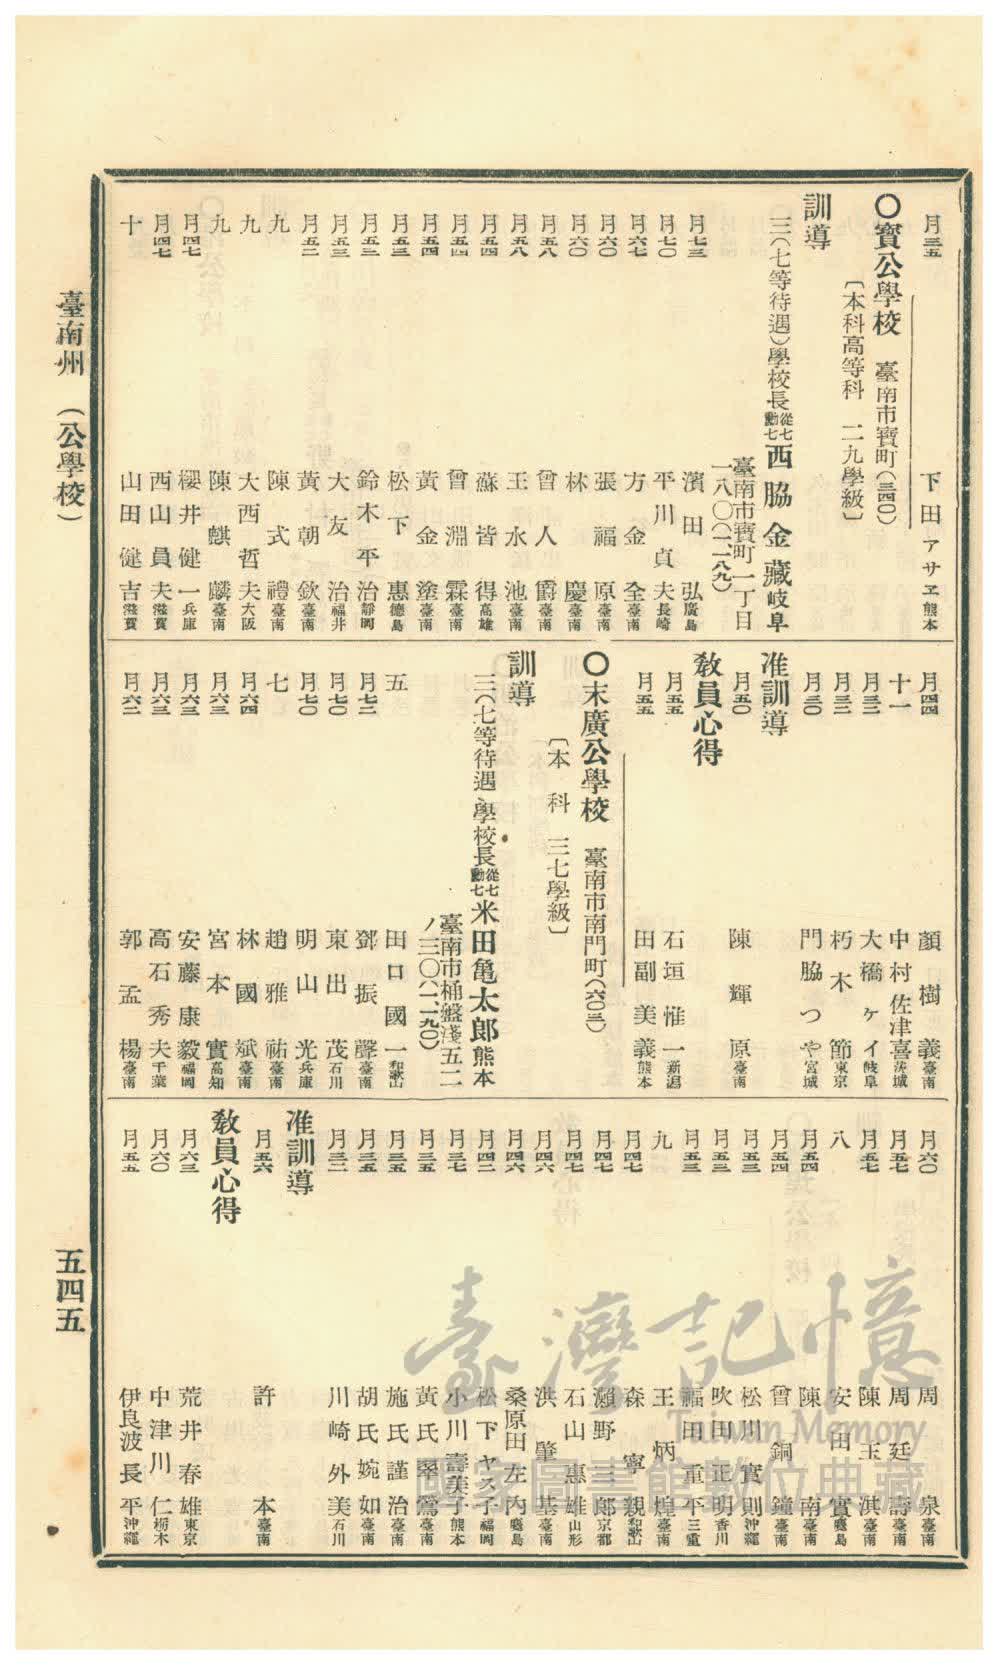 臺南州 (公學校)
五四五
月三五 下田アサヱ 熊本
〇寶公學校 臺南市寶町(三四〇)
〔本科高等科 二九學級〕
訓導
三(七等待遇)學校長 從七勳七 西脇金藏 岐阜
臺南市寶町一丁目
一八〇(二、二八九)
月七三 濱田弘 廣島
月七〇 平川貞夫 長崎
月六七 方金全 臺南
月六〇 張福原 臺南
月六〇 林慶 臺南
月五八 曾人爵 臺南
月五八 王水池 臺南
月五四 蘇皆得 高雄
月五四 曾淵霖 臺南
月五四 黃金塗 臺南
月五三 松下惠 德島
月五三 鈴木平治 靜岡
月五三 大友治 福井
月五二 黃朝欽 臺南
九 陳式禮 臺南
九 大西哲夫 大阪
九 陳麒麟 臺南
月四七 櫻井健一 兵庫
月四七 西山員夫 滋賀
十 山田健吉 滋賀
月四四 顏樹義 臺南
十一 中村佐津喜 茨城
月三二 大橋ケイ 岐阜
月三二 朽木節 東京
月三〇 門脇つや 宮城
准訓導
月五〇 陳輝原 臺南
教員心得
月五五 石垣惟一 新潟
月五五 田副美義 熊本
〇末廣公學校 臺南市南門町(六〇三)
〔本科 三七學級〕
訓導
三(七等待遇)學校長 從七勳七 米田亀太郎 熊本
臺南市桶盤淺五二
ノ三〇(二、一九〇)
五 田口國一 和歌山
月七二 鄧振聲 臺南
月七〇 東出茂 石川
月七〇 明山光 兵庫
七 趙雅祐 臺南
月六四 林國斌 臺南
月六三 宮本實 高知
月六三 安藤康毅 福岡
月六三 高石秀夫 千葉
月六二 郭孟楊 臺南
月六〇 周泉 臺南
月五七 周廷壽 臺南
月五七 陳玉淇 臺南
八 安田實 廣島
月五四 陳南 臺南
月五四 曾銅鐘 臺南
月五三 松川實則 沖繩
月五三 吹田正明 香川
月五三 福田重平 三重
九 王炳煌 臺南
月四七 森寧親 和歌山
月四七 瀨野三郎 京都
月四七 石山惠雄 山形
月四六 洪肇基 臺南
月四六 桑原田左內
月四二 松下ヤス子 福岡
月三七 小川壽美子 熊本
月三五 黃氏翠鶯 臺南
月三五 施氏謹治 臺南
月三五 胡氏婉如 臺南
月三二 川崎外美 石川
准訓導
月五六 許本 臺南
教員心得
月六三 荒井春雄 東京
月六〇 中津川仁 栃木
月五五 伊良波長平 沖繩
臺灣記憶
Taiwan Memory
國家圖書館數位典藏